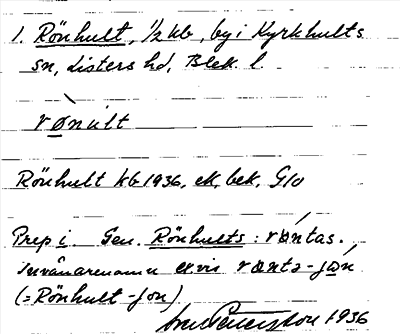 1. Rönhult, 1/2 kb, by i Kyrkhults
sn, Listers hd, Blek. l.
rø̀nult
Rönhult kb 1936, ek, bek, G10
Prep i. Gen. Rönhults: røntas.
Invånarenamn exvis
(= Rönhult-Jon)
1936